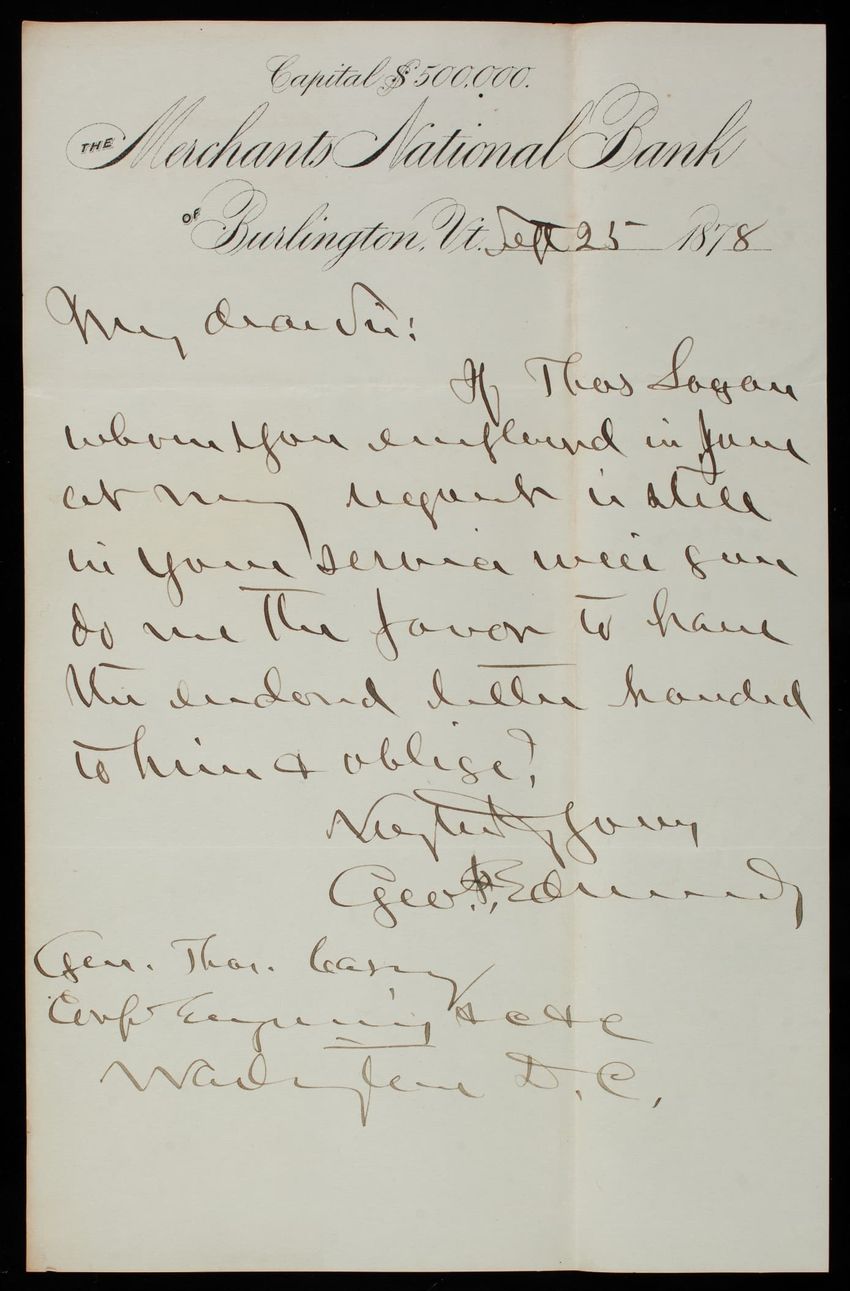 Capital $500,000.
THE Merchants National Bank
OF Burlington, Vt. Sept 25 1878
My dear Sir:
If Thos Logan
whom you employed in June
at my request is still
in your service will you
do me the favor to have
the enclosed letter handed
to him & oblige?
Very truly yours
Geo. F. Edmunds
Gen. Thos. Casey
Corps Engineers &c &c
Washington D. C.